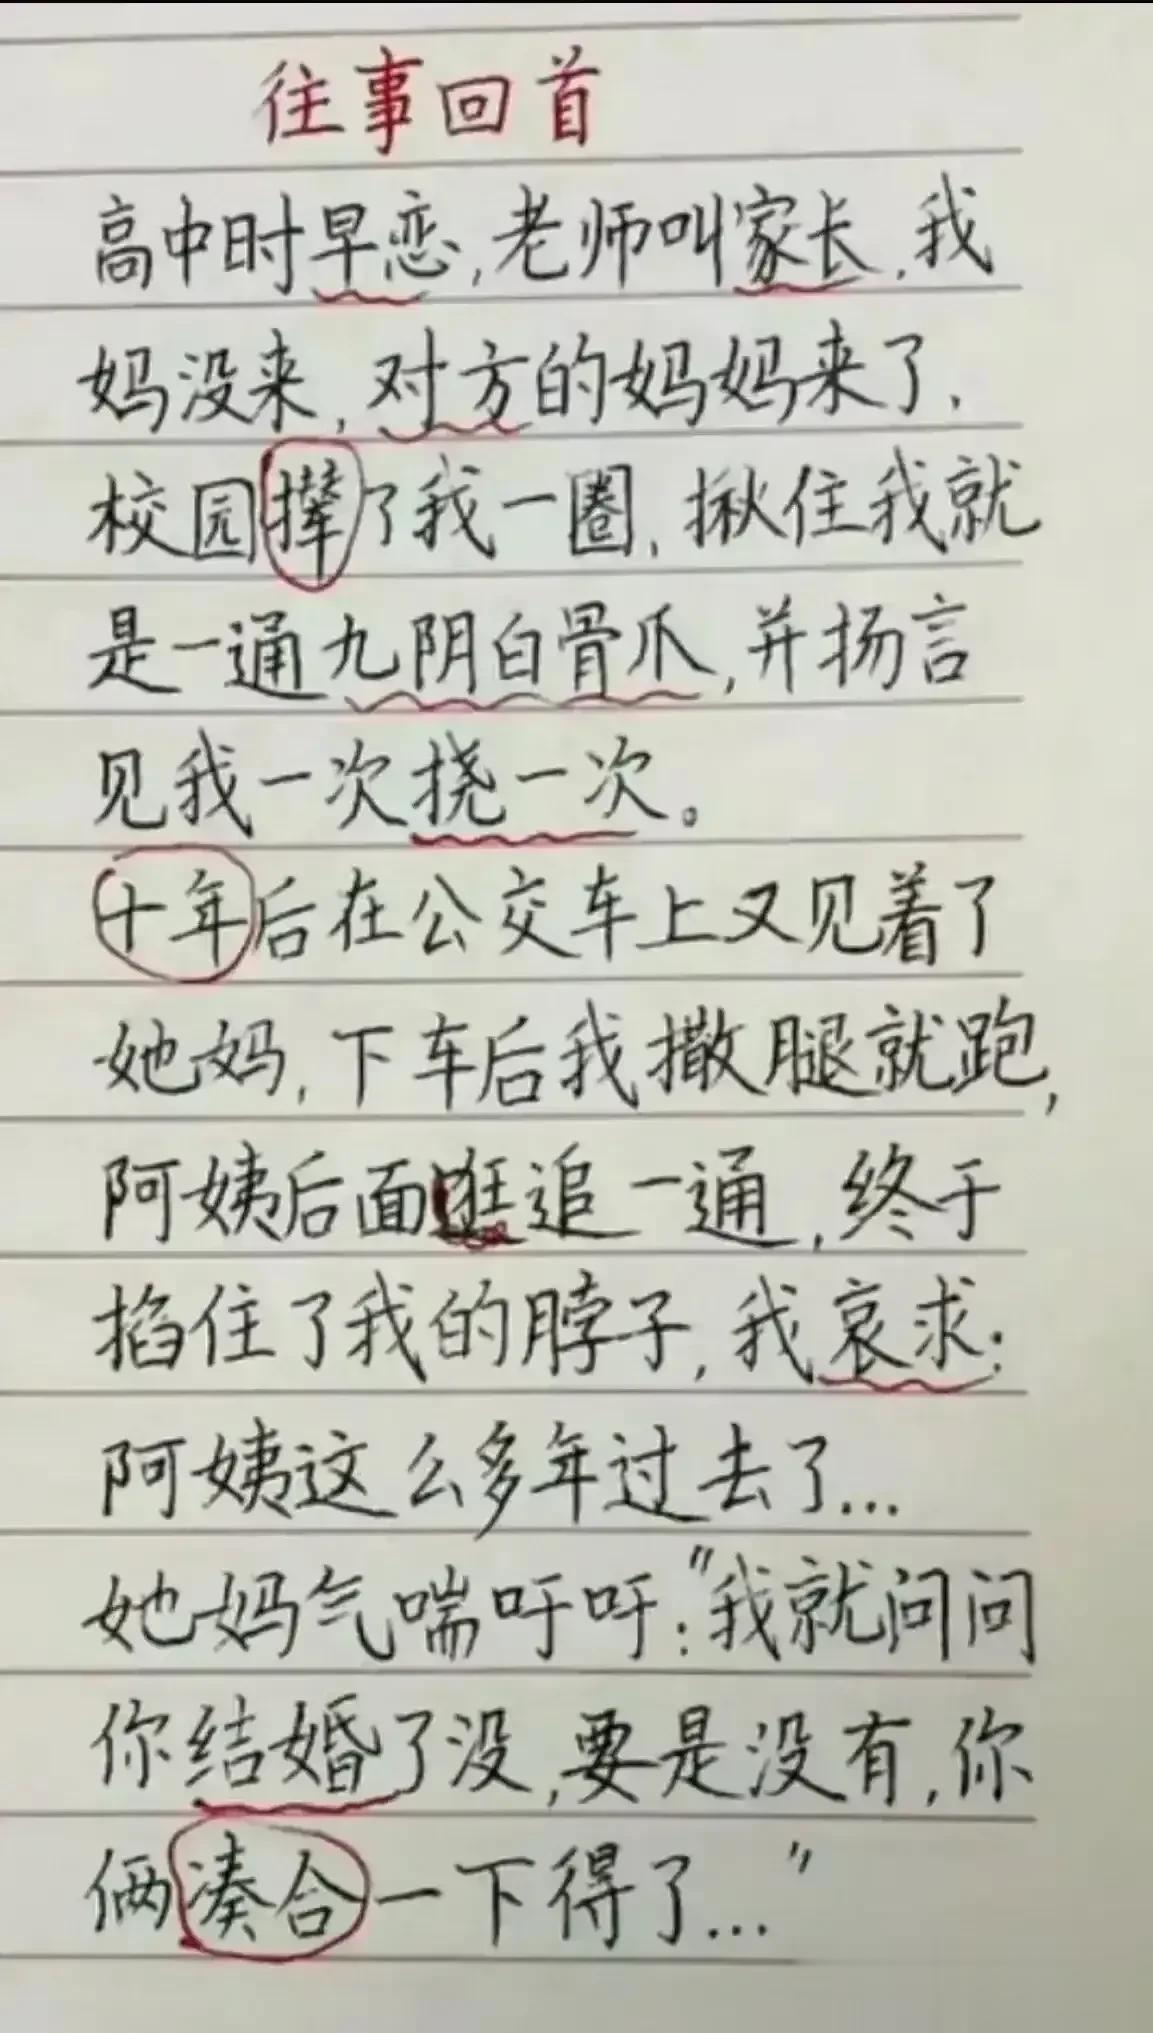 往事回首
高中时早恋,老师叫家长,我
妈没来,对方的妈妈来了,
校园撵了我一圈,揪住我就
是一通九阴白骨爪,并扬言
见我一次挠一次。
十年后在公交车上又见着了
她妈,下车后我撒腿就跑,
阿姨后面追一通,终于
掐住了我的脖子,我哀求:
阿姨这么多年过去了...
她妈气喘吁吁:"我就问问
你结婚了没,要是没有,你
俩凑合一下得了..."